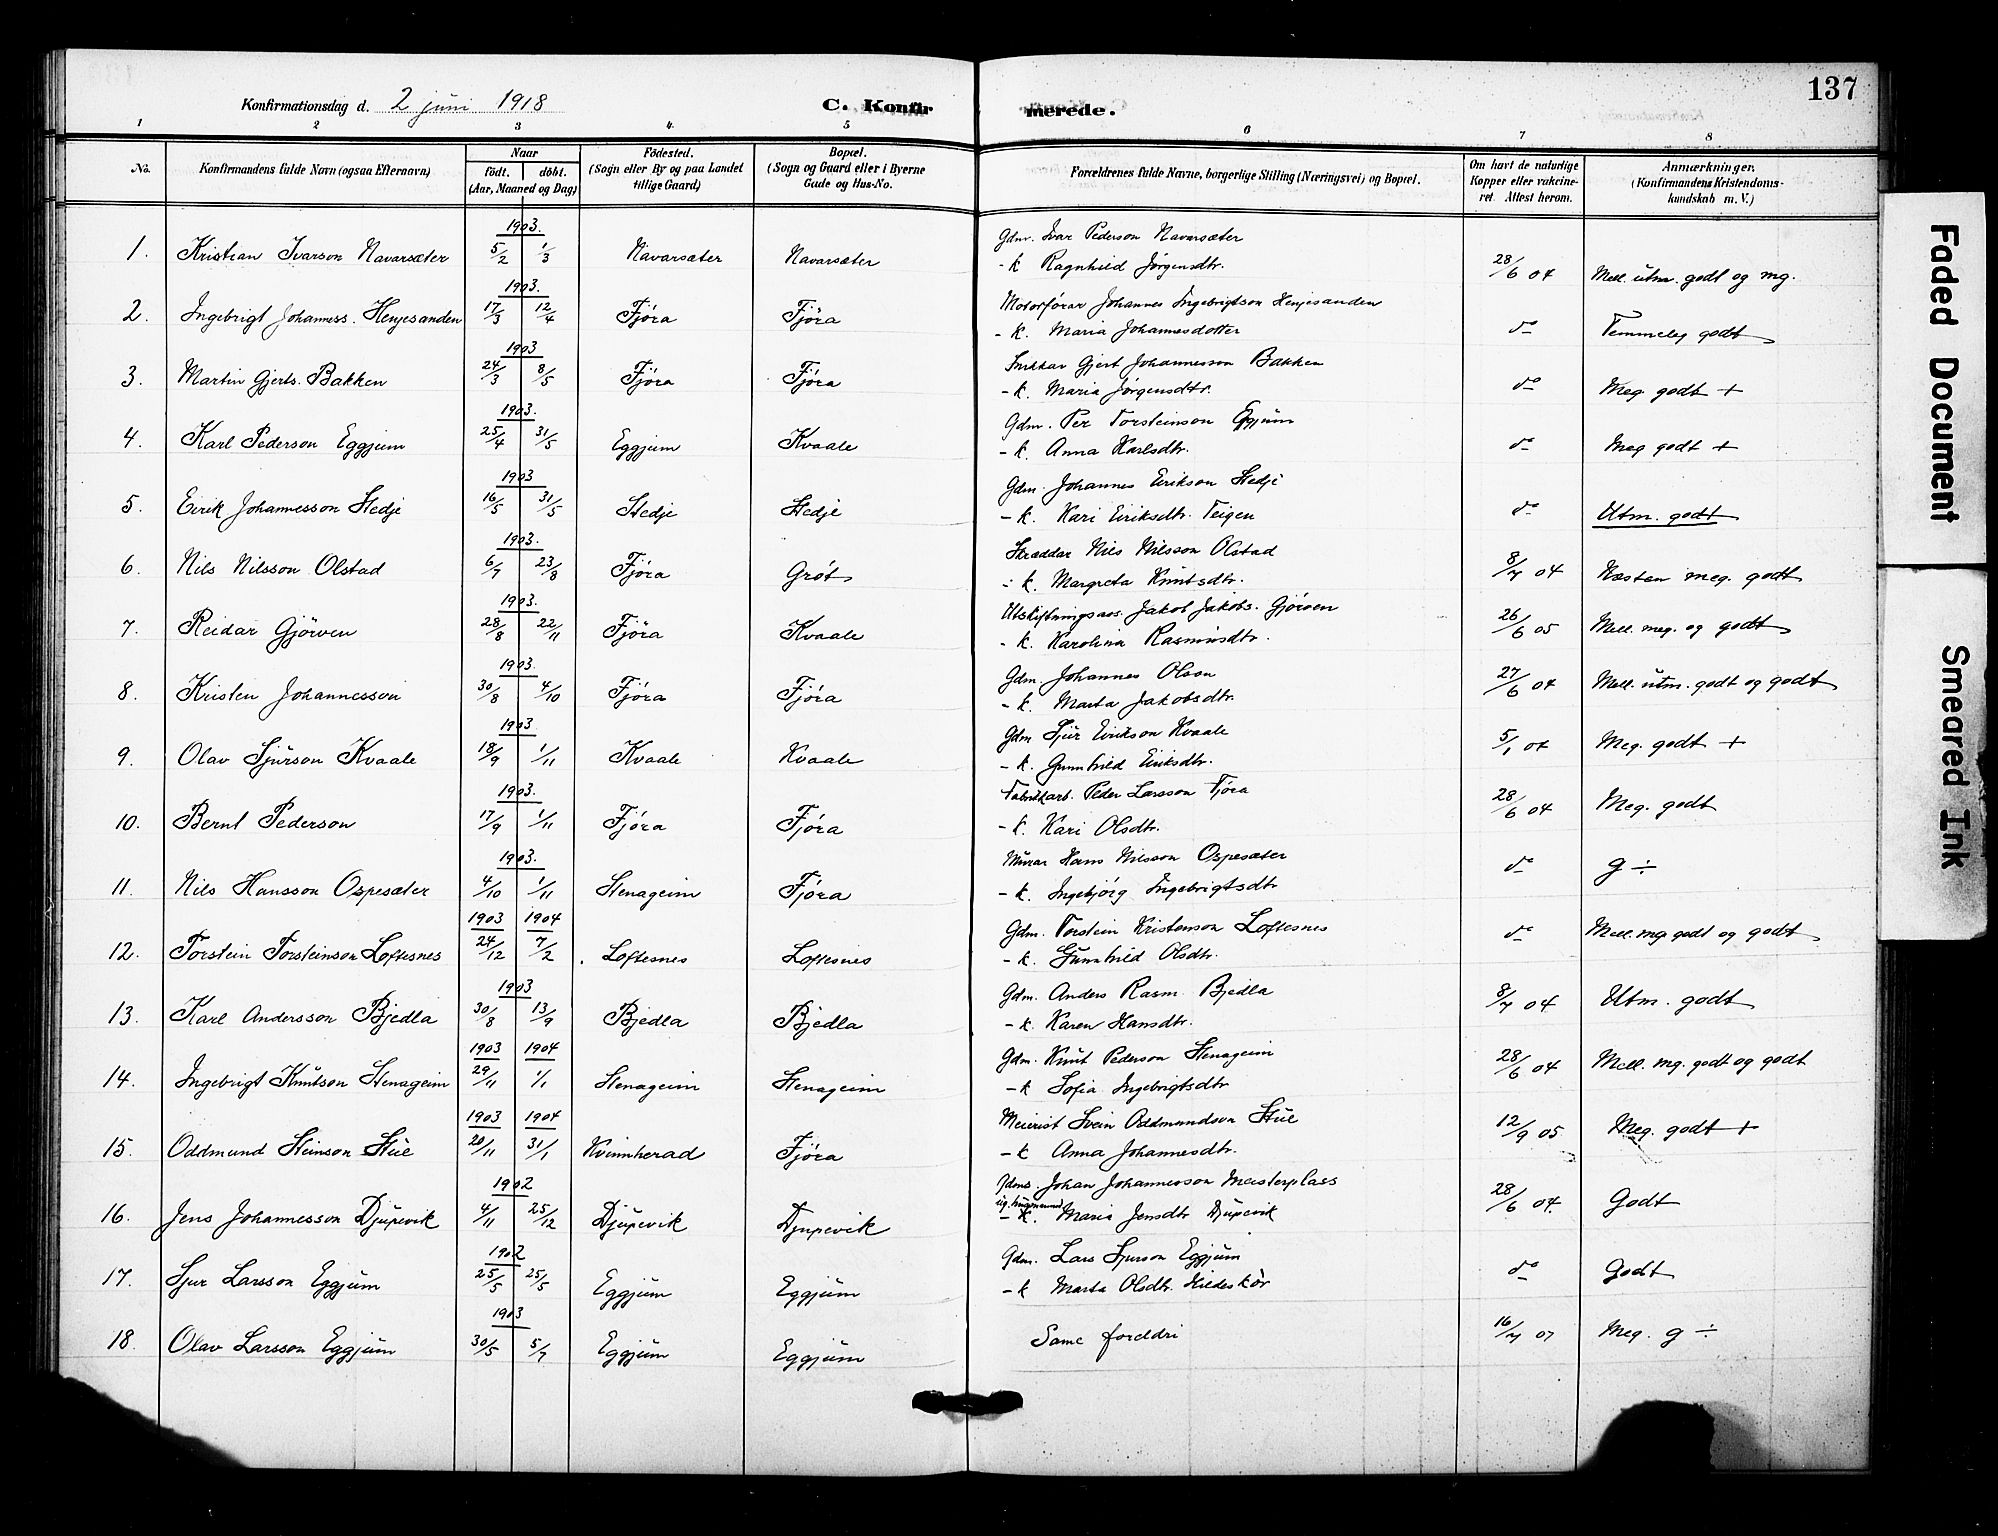 137
Konfirmationsdag d. 2 juni 1918
C. Konfirmerede.
1 2 3 4. 5 6 7 8
No.
Konfirmandens fulde Navn (ogsaa Efternavn)
Naar
födt. döbt.
(Aar, Maaned og Dag)
Födested.
(Sogn eller By og paa Landet
tillige Gaard)
Bopæl.
(Sogn og Gaard eller i Byerne
Gade og Hus-No.
Forældrenes fulde Navne, borgerlige Stilling (Næringsvei) og Bopæl.
Om havt de naturlige
Kopper eller vakcine-
ret. Attest herom.
Anmærkninger.
(Konfirmandens Kristendoms-
kundskab m. V.)
1903. Gdm. Ivar Pederson Navarsæter
1. Kristian Ivarson Navarsæter 5/2 1/3 Navarsæter Navarsæter - k Ragnhild Jørgensdtr. 28/6 04 Mell. utm. godt og mg.
1903. Motorförar Johannes Ingebrigtson Henjesanden
2. Ingebrigt Johanness. Henjesanden 17/3 12/4 Fjöra Fjöra - k. Maria Johannesdotter do Temmeleg godt
1903 Snikkar Gjert Johannesson Bakken
3. Martin Gjerts. Bakken 24/3 8/5 Fjöra Fjöra - k. Maria Jørgensdtr. do Meg. godt +
1903. Gdm. Per Torsteinson Eggjum
4. Karl Pederson Eggjum 25/4 31/5 Eggjum Kvaale - k. Anna Karlsdtr. do Meg godt +
1903 Gdm. Johannes Eirikson Stedje
5. Eirik Johannesson Stedje 16/5 31/5 Stedje Stedje - k. Kari Eiriksdtr. Teigen do Utm. godt
1903. Skræddar Nils Nilsson Olstad
6. Nils Nilsson Olstad 6/7 23/8 Fjöra Gröt - k. Margreta Knutsdtr. 8/7 04 Næsten meg. godt
1903. Utskiftningsas. Jakob Jakobs. Gjörven
7. Reidar Gjörven 28/8 22/11 Fjöra Kvaale - k. Karolina Rasmusdtr. 26/6 05 Mell. meg. og godt
1903. Gdm. Johannes Olson
8. Kristen Johannesson 30/8 4/10 Fjöra Fjöra - k. Marta Jakobsdtr. 27/6 04 Mell. utm. godt og godt
1903 Gdm Sjur Eirikson Kvaale
9. Olav Sjurson Kvaale 18/9 1/11 Kvaale Kvaale - k. Gunnhild Eiriksdtr. 5/1 04 Meg. godt +
1903. Fabrikkarb. Peder Larsson Fjöra
10. Bernt Pederson 17/9 1/11 Fjöra Fjöra - k. Kari Olsdtr. 28/6 04 Meg. godt
1903. Murar Hans Nilsson Ospesæter
11. Nils Hansson Ospesæter 4/10 1/11 Stenageim Fjöra - k. Ingebjörg Ingebrigtsdtr do g ÷
1903 1904 Gdm. Torstein Kristenson Loftesnes
12. Torstein Torsteinson Loftesnes 24/12 7/2 Loftesnes Loftesnes - k. Gunnhild Olsdtr. do Mell. mg godt og godt
1903 Gdm. Anders Rasm. Bjedla
13. Karl Andersson Bjedla 30/8 13/9 Bjedla Bjedla - k. Karen Hansdtr. 8/7 04 Utm. godt
1903 1904 Gdm. Knut Pederson Stenageim
14. Ingebrigt Knutson Stenageim 29/11 1/1 Stenageim Stenageim - k Sofia Ingebrigtsdtr 28/6 04 Mell. mg. godt og godt
1903 1904 Meierist Svein Oddmundson Stue
15. Oddmund Steinson Stue 20/11 31/1 Kvinnherad Fjöra - k Anna Johannesdtr. 12/9 05 Meg. godt +
1902 Gdms. Johan Johannesson Meisterplass
16. Jens Johannesson Djupevik 4/11 25/12 Djupevik Djupevik - k. Maria Jensdtr Djupevik 28/6 04. Godt
1902 Gdm. Lars Sjurson Eggjum
17. Sjur Larsson Eggjum 25/5 25/5 Eggjum Eggjum - k Marta Olsdtr. Hildeskör do Godt
1903
18. Olav Larsson Eggjum 30/5 5/7 Eggjum Eggjum Same foreldri 16/7 07 Meg. g ÷
Faded Document
Smeared Ink